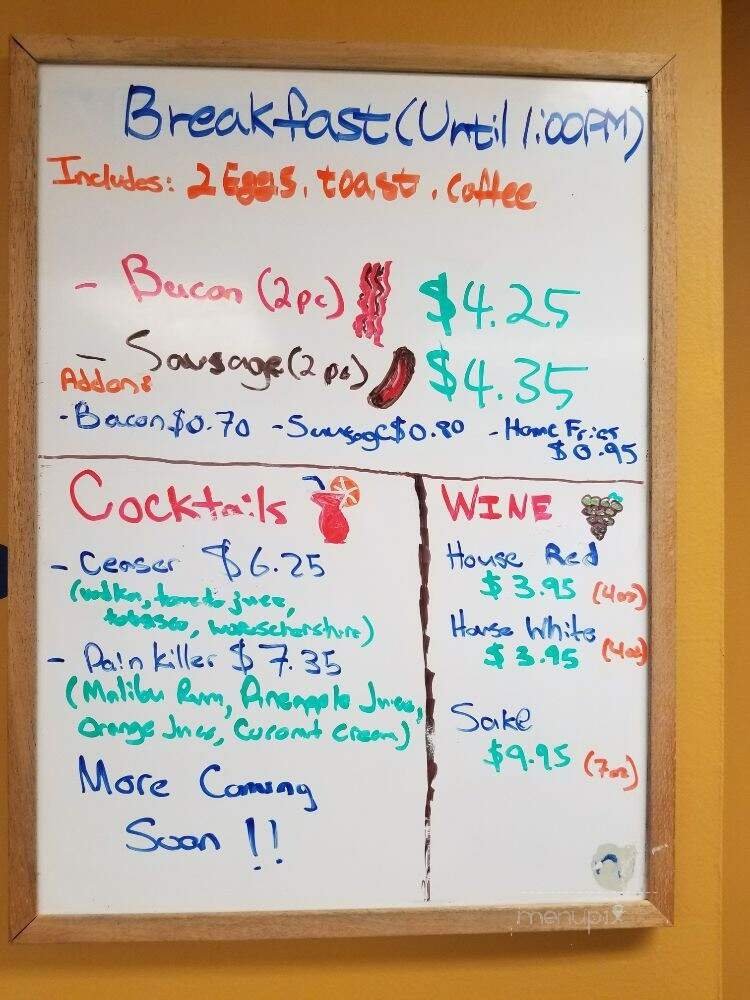 Breakfast (Until 1:00PM)
Includes: 2 Eggs, toast, Coffee
- Bacon (2pc) $4.25
- Sausage (2 pc) $4.35
Addons
- Bacon $0.70 - Sausage $0.80 - Home Fries
$0.95
Cocktails
- Ceaser $6.25
(vodka, tomato juice,
tobasco, worschershire)
- Pain Killer $7.35
(Malibu Rum, Pineapple Juice,
Orange Juice, Coconut Cream)
More Coming
Soon!!
WINE
House Red
$3.95 (4oz)
House White
$3.95 (4oz)
Sake
$9.95 (7oz)
menupix